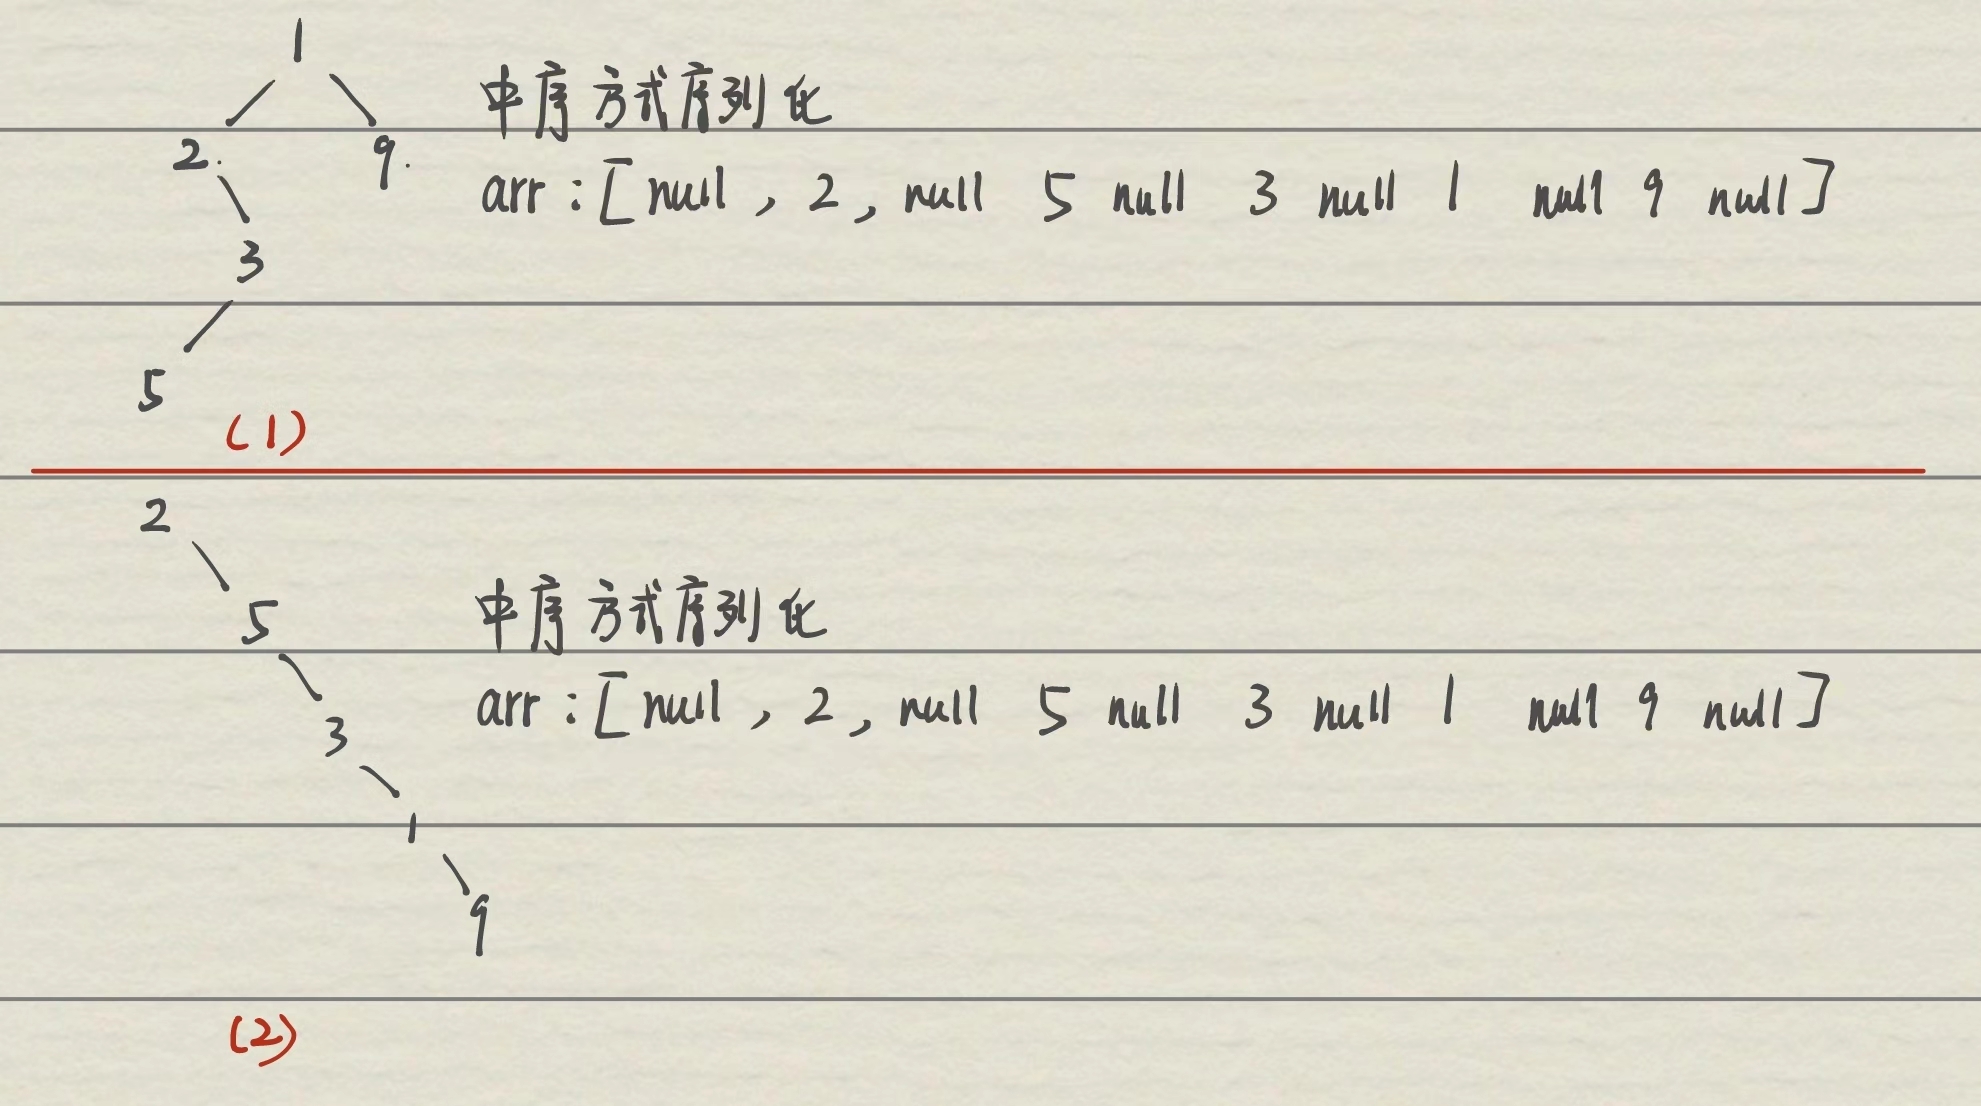 1
中序方式序列化
2 9
arr : [ null , 2 , null 5 null 3 null 1 null 9 null ]
3
5
(1)
2
5
中序方式序列化
arr : [ null , 2 , null 5 null 3 null 1 null 9 null ]
3
1
9
(2)